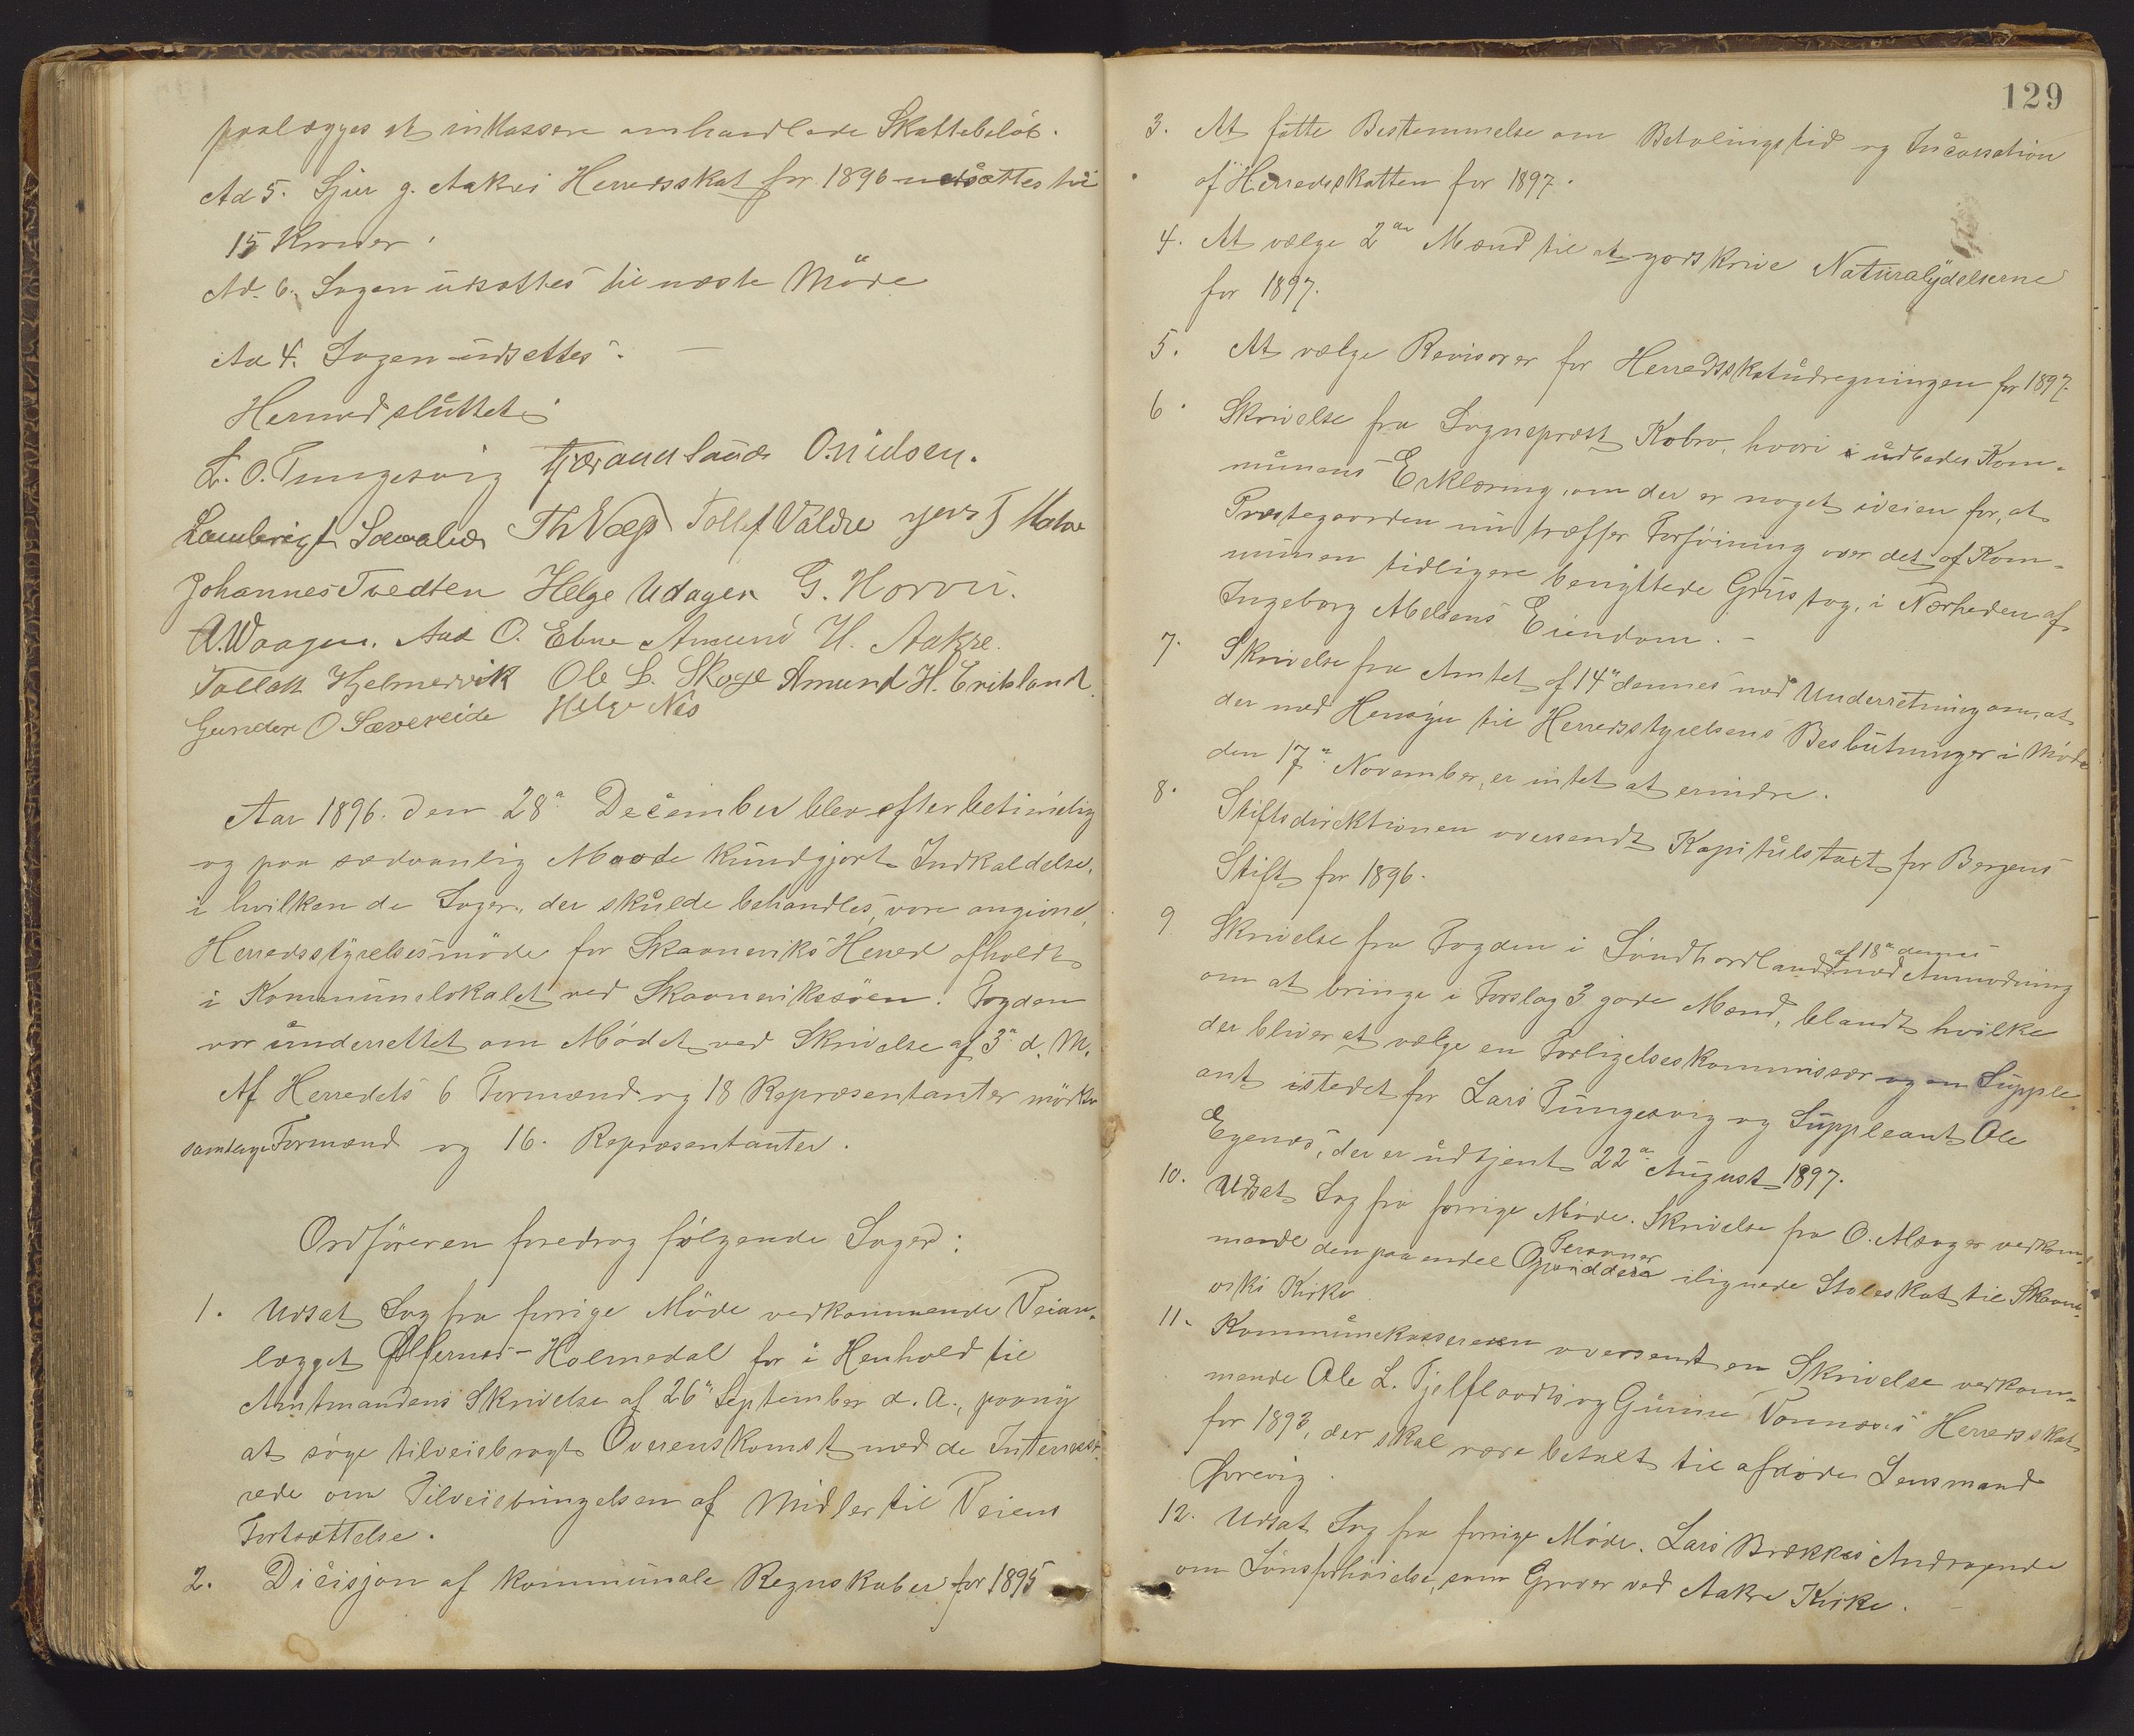 paalægges at inkassere omhandlede Skattebeløb.
Ad 5. Sjur g. Aakres Herredsskat for 1896 nedsættes til
15 Kroner.
Ad. 6. Sagen udsættes til næste Møde
Ad 4. Sagen udsættes.
Hermed sluttet.
L. O. Tungesvig O. Nilsen.
Lambrigt Sævalid Th Vaage Tollef Valdre
Johannes Tvedten Helge Udager G. Horvei.
A. Waagen. Aad O. Ebne Amund H. Aakre.
Tollak Hjelmervik Ole L. Skoge Amund H. Eriksland.
Gunder O Sævereide Helge Nes
Aar 1896. den 28de December blev efter betimelig
og paa sædvanlig Maade kundgjort Indkaldelse,
i hvilken de Sager, der skulde behandles, vare angivne,
Herredsstyrelsesmøde for Skaanevik's Herred afholdt
i Kommunelokalet ved Skaanevikssøen. Fogden
var underrettet om Mødet ved Skrivelse af 3de d. M.
Af Herredets 6 Formænd og 18 Repræsentanter mødte
samtlige Formænd og 16. Repræsentanter.
Ordføreren foredrog følgende Sager:
1. Udsat Sag fra forrige Møde vedkommende Veian-
lægget Ølfernes-Holmedal for i Henhold til
Amtmandens Skrivelse af 26de September d. A., paany
at søge tilveiebragt Overenskomst med de Interes-
rede om Tilveiebringelsen af Midler til Veiens
Fortsættelse.
2. Decisjon af kommunale Regnskaber for 1895
129
3. At fatte Bestemmelse om Betalingstid og Incassation
af Herredsskatten for 1897.
4. At vælge 2de Mænd til at gardskrive Naturalydelserne
for 1897.
5. At vælge Revisorer for Herredsskatudregningen for 1897.
6. Skrivelse fra Sogneprest Kobro, hvori udbedes Kom-
munens Erklæring, om der er noget iveien for, at
Prestegaarden nu træffer Forføining over det af Kom-
munen tidligere benyttede Grustag, i Nærheden af
Ingeborg Abelsens Eiendom. -
7. Skrivelse fra Amtet af 14de dennes med Underretning om, at
der med Hensyn til Herredsstyrelsens Beslutninger i Møde
den 17de November, er intet at erindre.
8. Stiftsdirektionen oversendt Kapitulstaxt for Bergens
Stift for 1896.
9 Skrivelse fra Fogden i Søndhordland af 18de dennes med Anmodning
om at bringe i Forslag 3 gode Mænd, blandt hvilke
der bliver at vælge en Forligelseskommissær og en Supple-
ant istedet for Lars Tungesvig og Suppleant Ole
Egenæs, der er udtjent 22de August 1897.
10. Udsat Sag fra forrige Møde. Skrivelse fra O. Alsager vedkom-
mende den paa endel Personer ilignede Stoleskat til Skaane-
viks Kirke
11. Kommunekassereren oversendt en Skrivelse vedkom-
mende Ole L. Fjelflaadts og Guinne Vannæs's Herredsskat
for 1893, der skal være betalt til afdøde Lensmand
Grevig.
12. Udsat Sag fra forrige Møde. Lars Brekkes Andragende
om Lønsforhøielse, som Graver ved Aakre Kirke.